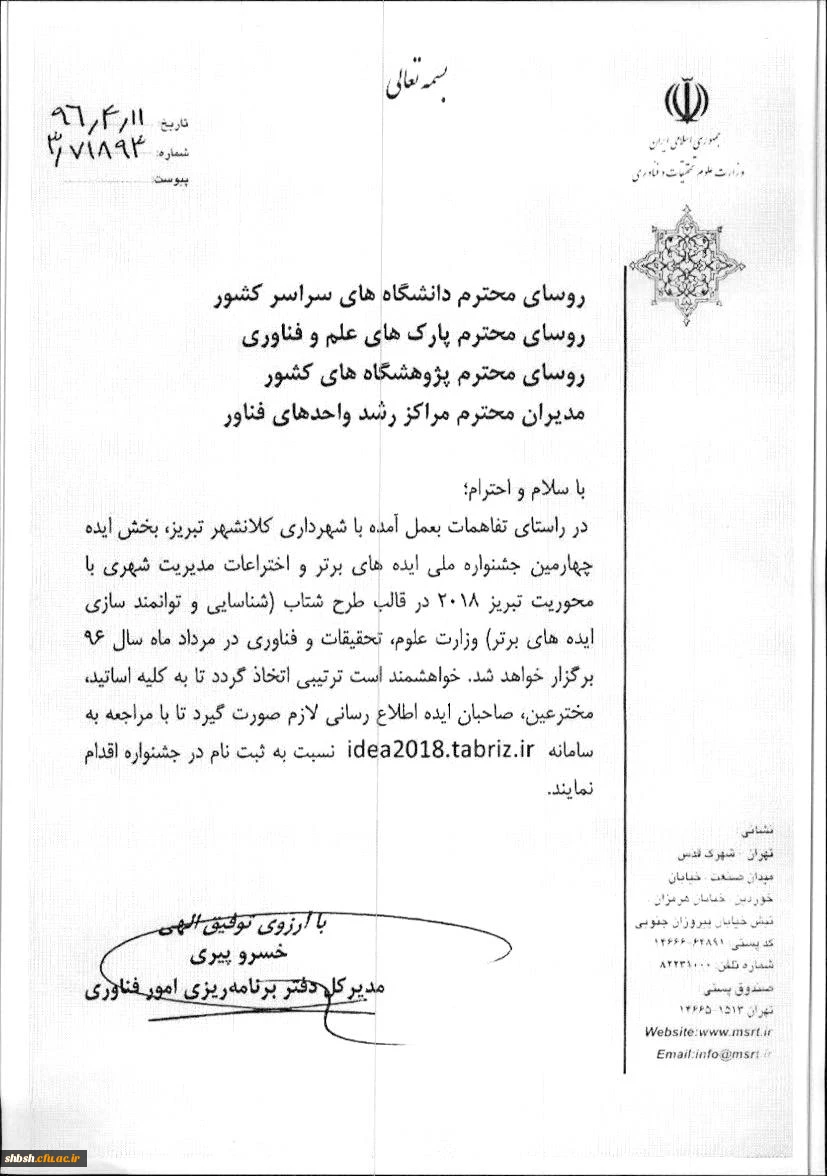 بسمه تعالی
جمهوری اسلامی ایران
وزارت علوم تحقیقات و فناوری
تاریخ: ۹۶٫۴٫۱۱
شماره: ۳٫۷۱۸۹۴
پیوست:
روسای محترم دانشگاه های سراسر کشور
روسای محترم پارک های علم و فناوری
روسای محترم پژوهشگاه های کشور
مدیران محترم مراکز رشد واحدهای فناور
با سلام و احترام؛
در راستای تفاهمات بعمل آمده با شهرداری کلانشهر تبریز، بخش ایده
چهارمین جشنواره ملی ایده های برتر و اختراعات مدیریت شهری با
محوریت تبریز ۲۰۱۸ در قالب طرح شتاب (شناسایی و توانمند سازی
ایده های برتر) وزارت علوم، تحقیقات و فناوری در مرداد ماه سال ۹۶
برگزار خواهد شد. خواهشمند است ترتیبی اتخاذ گردد تا به کلیه اساتید،
مخترعین، صاحبان ایده اطلاع رسانی لازم صورت گیرد تا با مراجعه به
سامانه idea2018.tabriz.ir نسبت به ثبت نام در جشنواره اقدام
نمایند.
با آرزوی توفیق الهی
خسرو پیری
مدیرکل دفتر برنامه‌ریزی امور فناوری
نشانی:
تهران - شهرک قدس
میدان صنعت - خیابان
خوردین - خیابان هرمزان
نبش خیابان پیروزان جنوبی
کد پستی: ۶۴۸۹۱-۱۴۶۶۶
شماره تلفن: ۸۲۲۳۱۰۰۰
صندوق پستی:
تهران ۱۵۱۳-۱۴۶۶۵
Website:www.msrt.ir
Email:info@msrt.ir
shbsh.cfu.ac.ir